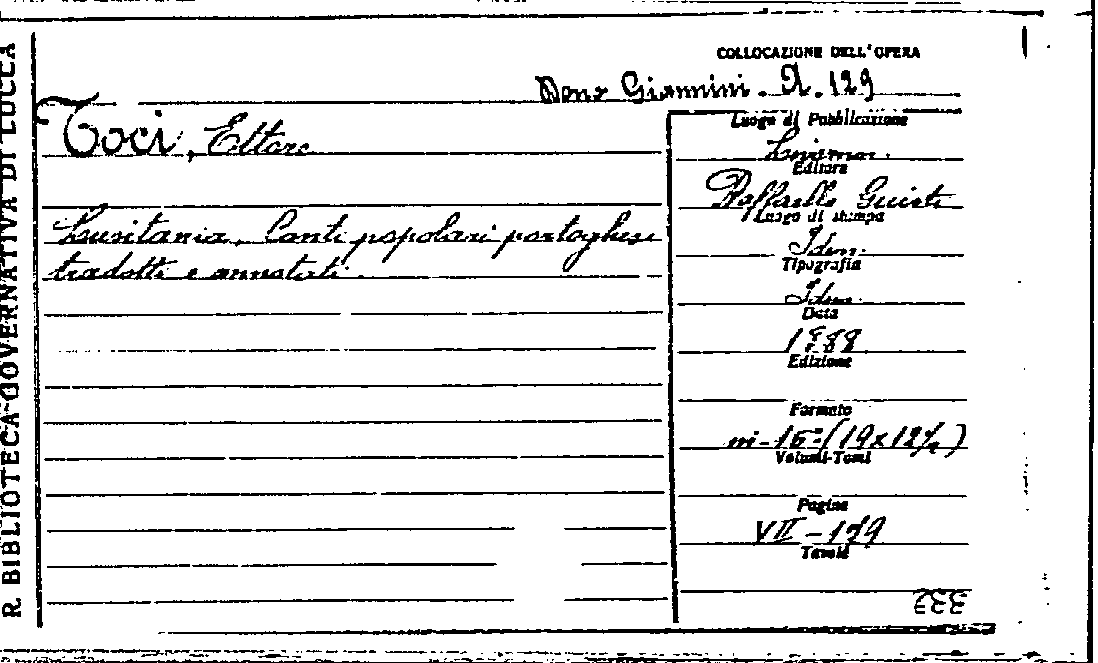 R. BIBLIOTECA GOVERNATIVA DI LUCCA
COLLOCAZIONE DELL'OPERA
Dono Giannini. A. 129
Toci, Ettore
Lusitania. Canti popolari portoghesi
tradotti e annotati.
Luogo di Pubblicazione
Livorno.
Editore
Raffaello Giusti
Luogo di stampa
Idem.
Tipografia
Idem.
Data
1888
Edizione
Formato
in-16º (19x12½)
Volumi-Tomi
Pagine
VII-179
Tavole